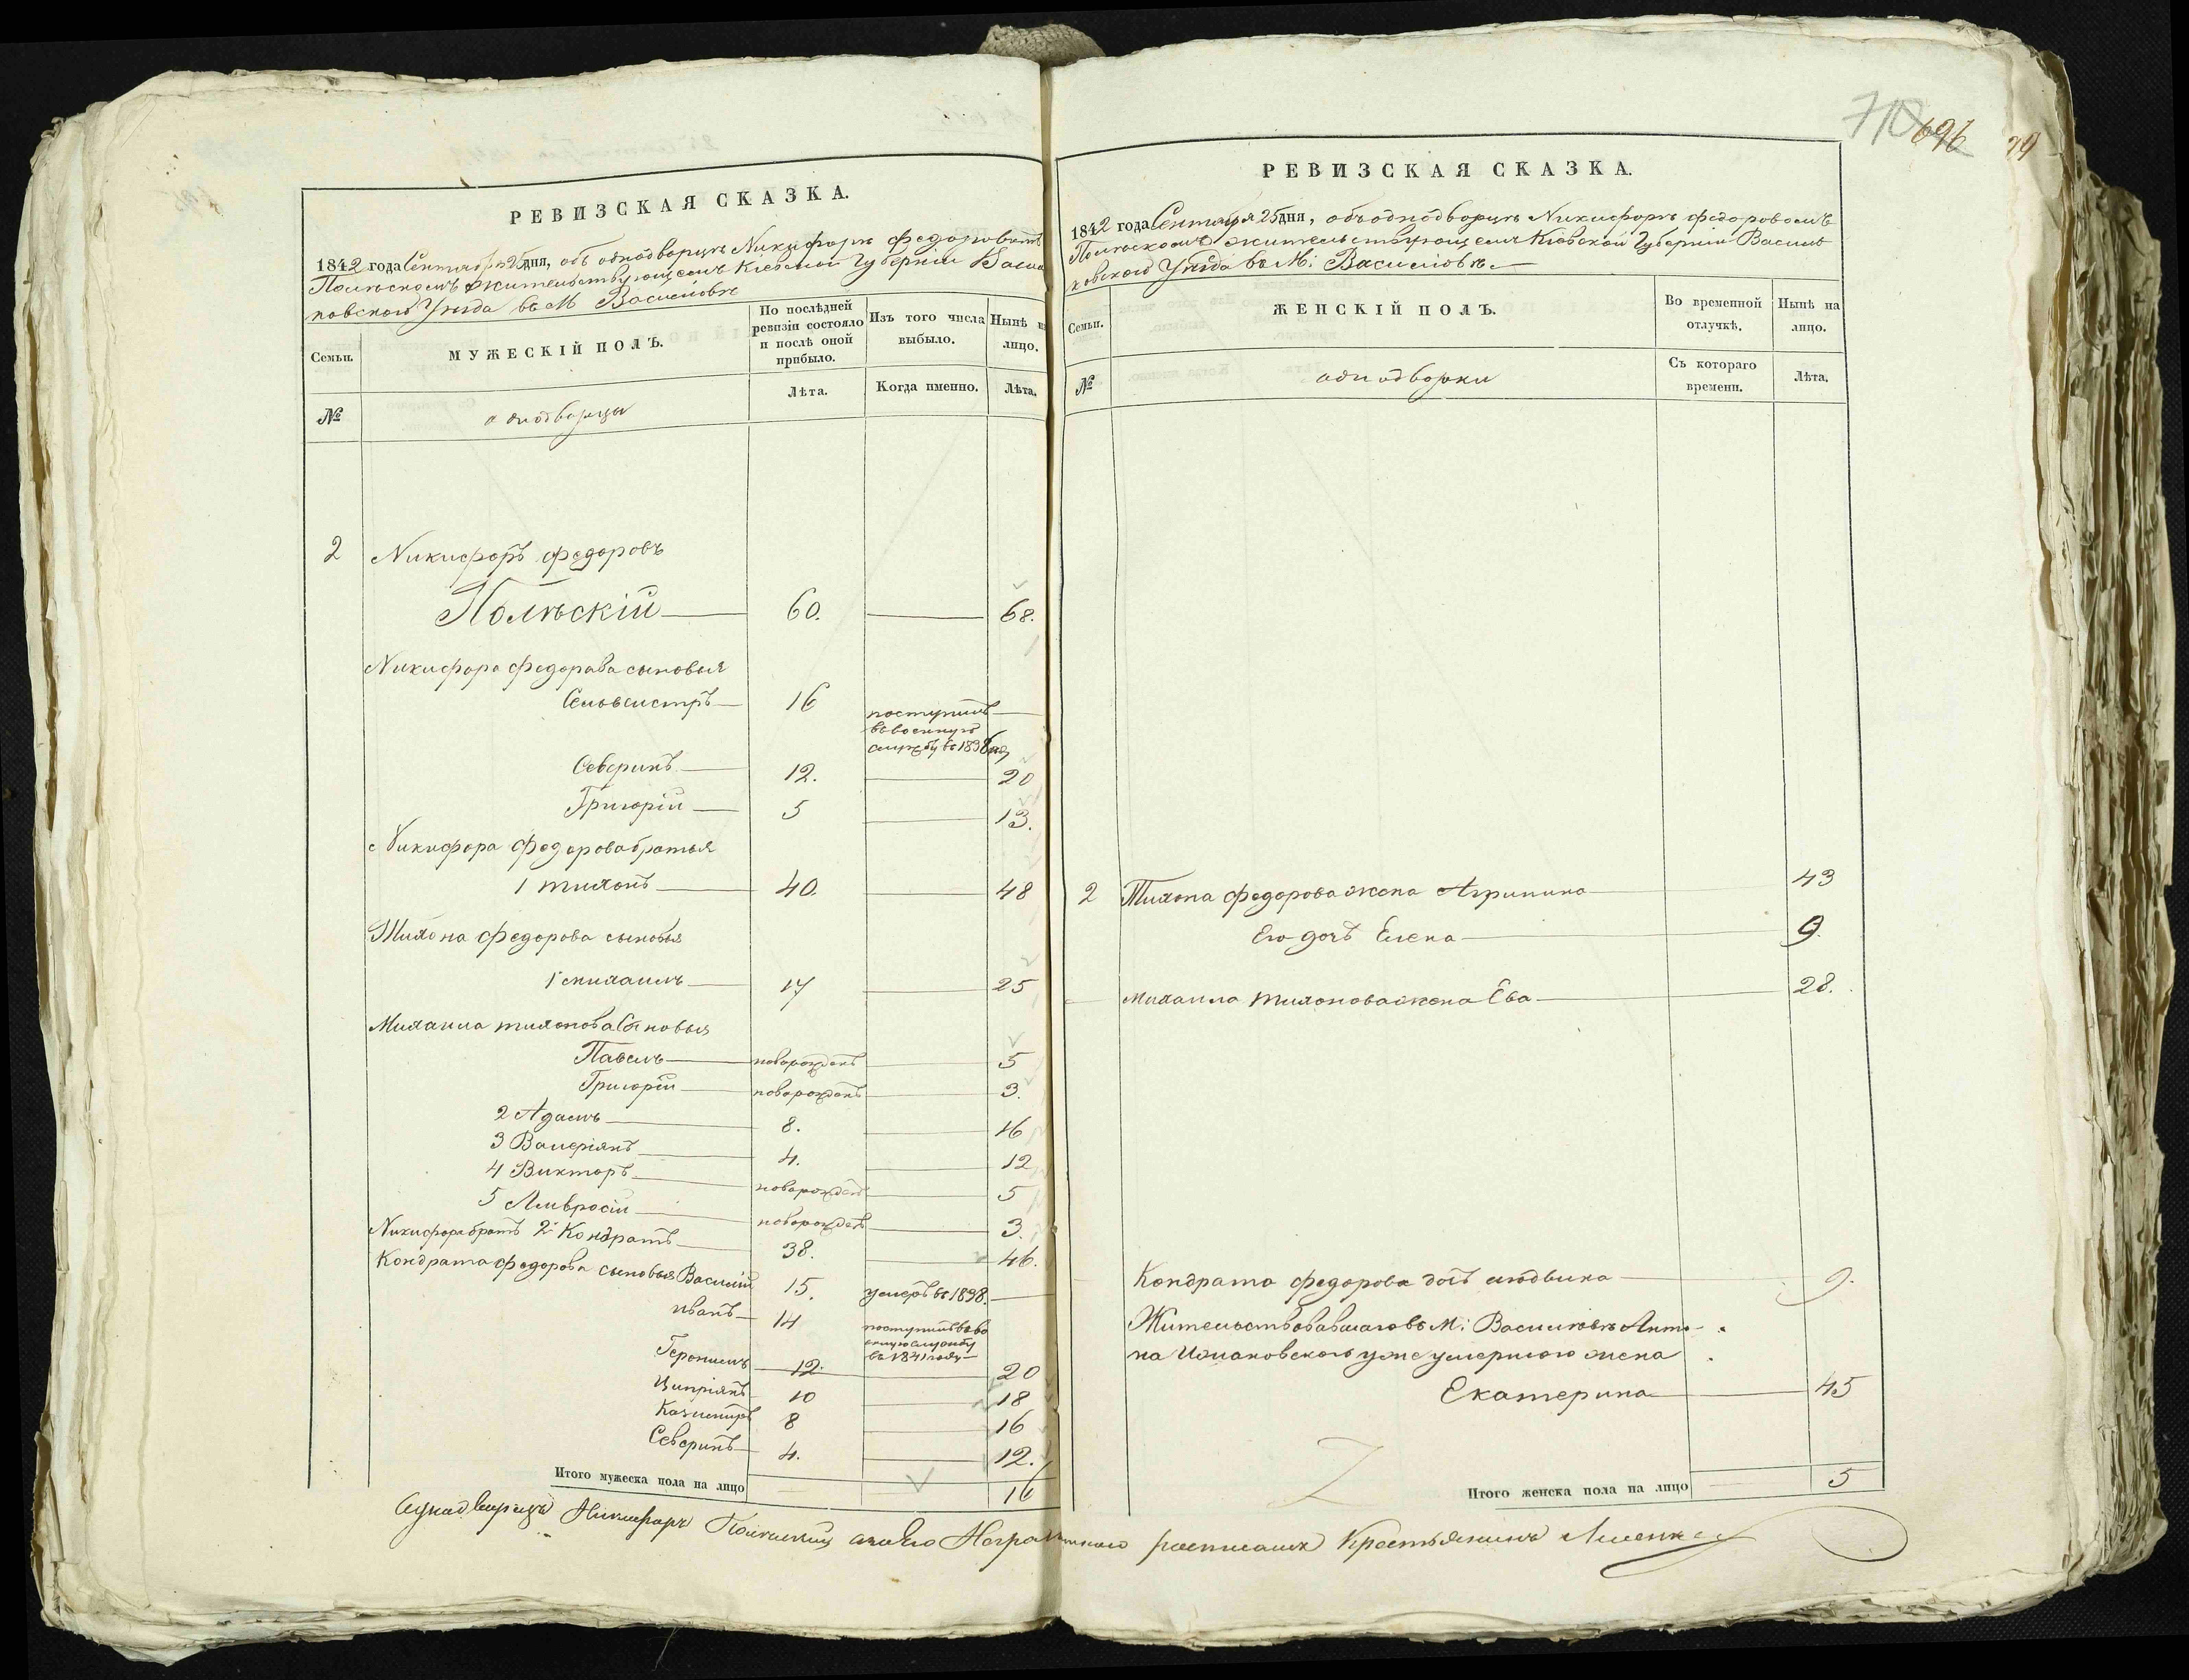 РЕВИЗСКАЯ СКАЗКА.
1842 года Сентября 25 дня, объ однодворцѣ Никифорѣ Федоровомъ
Полѣскомъ жительствующемъ Кіевской Губерніи Василь
ковскаго Уѣзда въ М Василіовкѣ
Семьи.
МУЖЕСКІЙ ПОЛЪ.
По послѣдней
ревизіи состояло
и послѣ оной
прибыло.
Изъ того числа
выбыло.
Нынѣ на
лицо.
Лѣта.
Когда именно.
Лѣта.
№
однодворцы
2 Никифоръ Федоровъ
Полѣскій 60. 68.
Никифора Федорова сыновья
16 поступилъ
въ военную
службу въ 1838 году
Северинъ 12. 20
Григорій 5 13.
Никифора Федорова братья
1 Тихонъ 40. 48
Тихона Федорова сыновья
1 михаилъ 17 25
Михаила тихонова Сыновья
Павелъ новорожденъ 5
Григорій новорожденъ 3.
2 Адамъ 8. 16
3 Валеріянъ 4. 12
4 Викторъ новорожденъ 5
5 Амвросій новорожденъ 3.
Никифора братъ 2й Кондратъ 38. 46.
Кондрата Федорова сыновья Василій 15. умеръ въ 1838.
иванъ 14 поступилъ въ во
енную службу
въ 1841 году
Геронимъ 12. 20
Ципріянъ 10 18
Казимиръ 8 16
Северинъ 4. 12.
Итого мужеска пола на лицо 16
710 696 99
РЕВИЗСКАЯ СКАЗКА.
1842 года Сентября 25 дня, объ однодворцѣ Никифорѣ Федоровомъ
Полѣскомъ жительствующемъ Кіевской Губерніи Василь
ковского Уѣзда въ М: Василіовкѣ
Семьи.
ЖЕНСКІЙ ПОЛЪ.
Во временной
отлучкѣ.
Нынѣ на
лицо.
№
однодворки
Съ котораго
времени.
Лѣта.
2 Тихона Федорова жена Агрипина 43
Его дочъ Елена 9.
михаила тихонова жена Ева 28.
Кондрата Федорова дочъ людвика 9.
Жительствовавшаго въ М: Василіовкѣ Анто-
на уже умершого жена
Екатерина 45
Итого женска пола на лицо 5
Никифоръ Полѣский а за его Неграмотного росписался Крестьянинъ